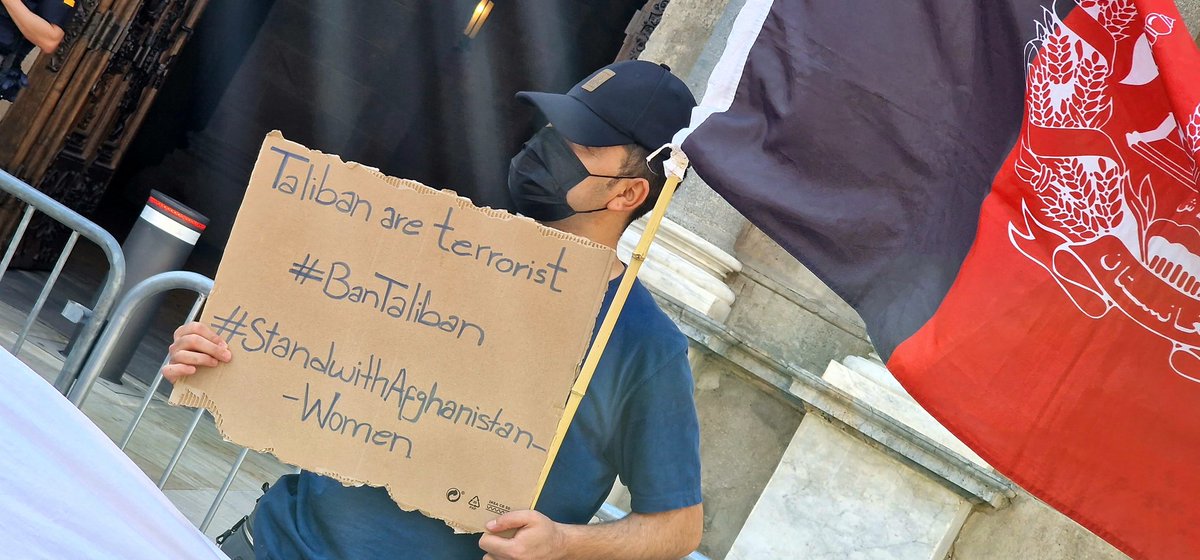 Taliban are terrorist
#BanTaliban
#StandwithAfghanistan-
-Women